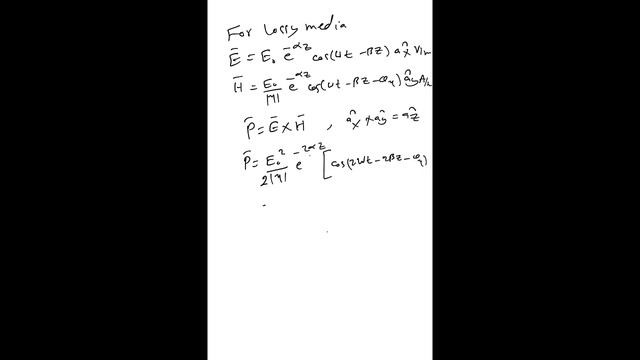 For Lossy media
Ē = E₀ e^-αz cos(ωt - βz) âx V/m
H̄ = E₀/|η| e^-αz cos(ωt - βz - φη) ây A/m
P̄ = Ē × H̄ , âx × ây = âz
P̄ = E₀²/2|η| e^-2αz [cos(2ωt - 2βz - φη)